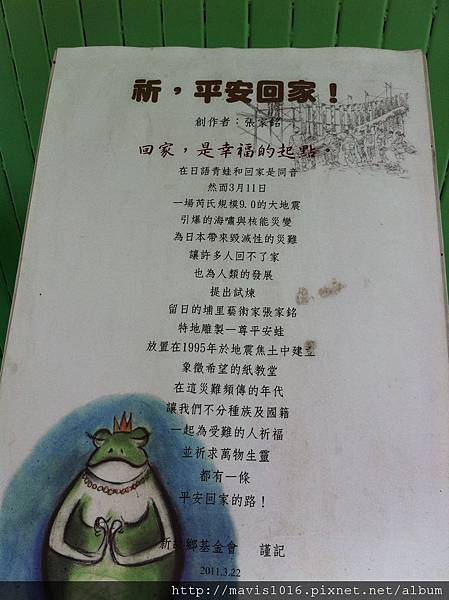 祈，平安回家！
創作者：張家銘
回家，是幸福的起點。
在日語青蛙和回家是同音
然而3月11日
一場芮氏規模9.0的大地震
引爆的海嘯與核能災變
為日本帶來毀滅性的災難
讓許多人回不了家
也為人類的發展
提出試煉
留日的埔里藝術家張家銘
特地雕製一尊平安蛙
放置在1995年於地震焦土中建立
象徵希望的紙教堂
在這災難頻傳的年代
讓我們不分種族及國籍
一起為受難的人祈福
並祈求萬物生靈
都有一條
平安回家的路！
新故鄉基金會 謹記
2011.3.22
http://mavis1016.pixnet.net/album